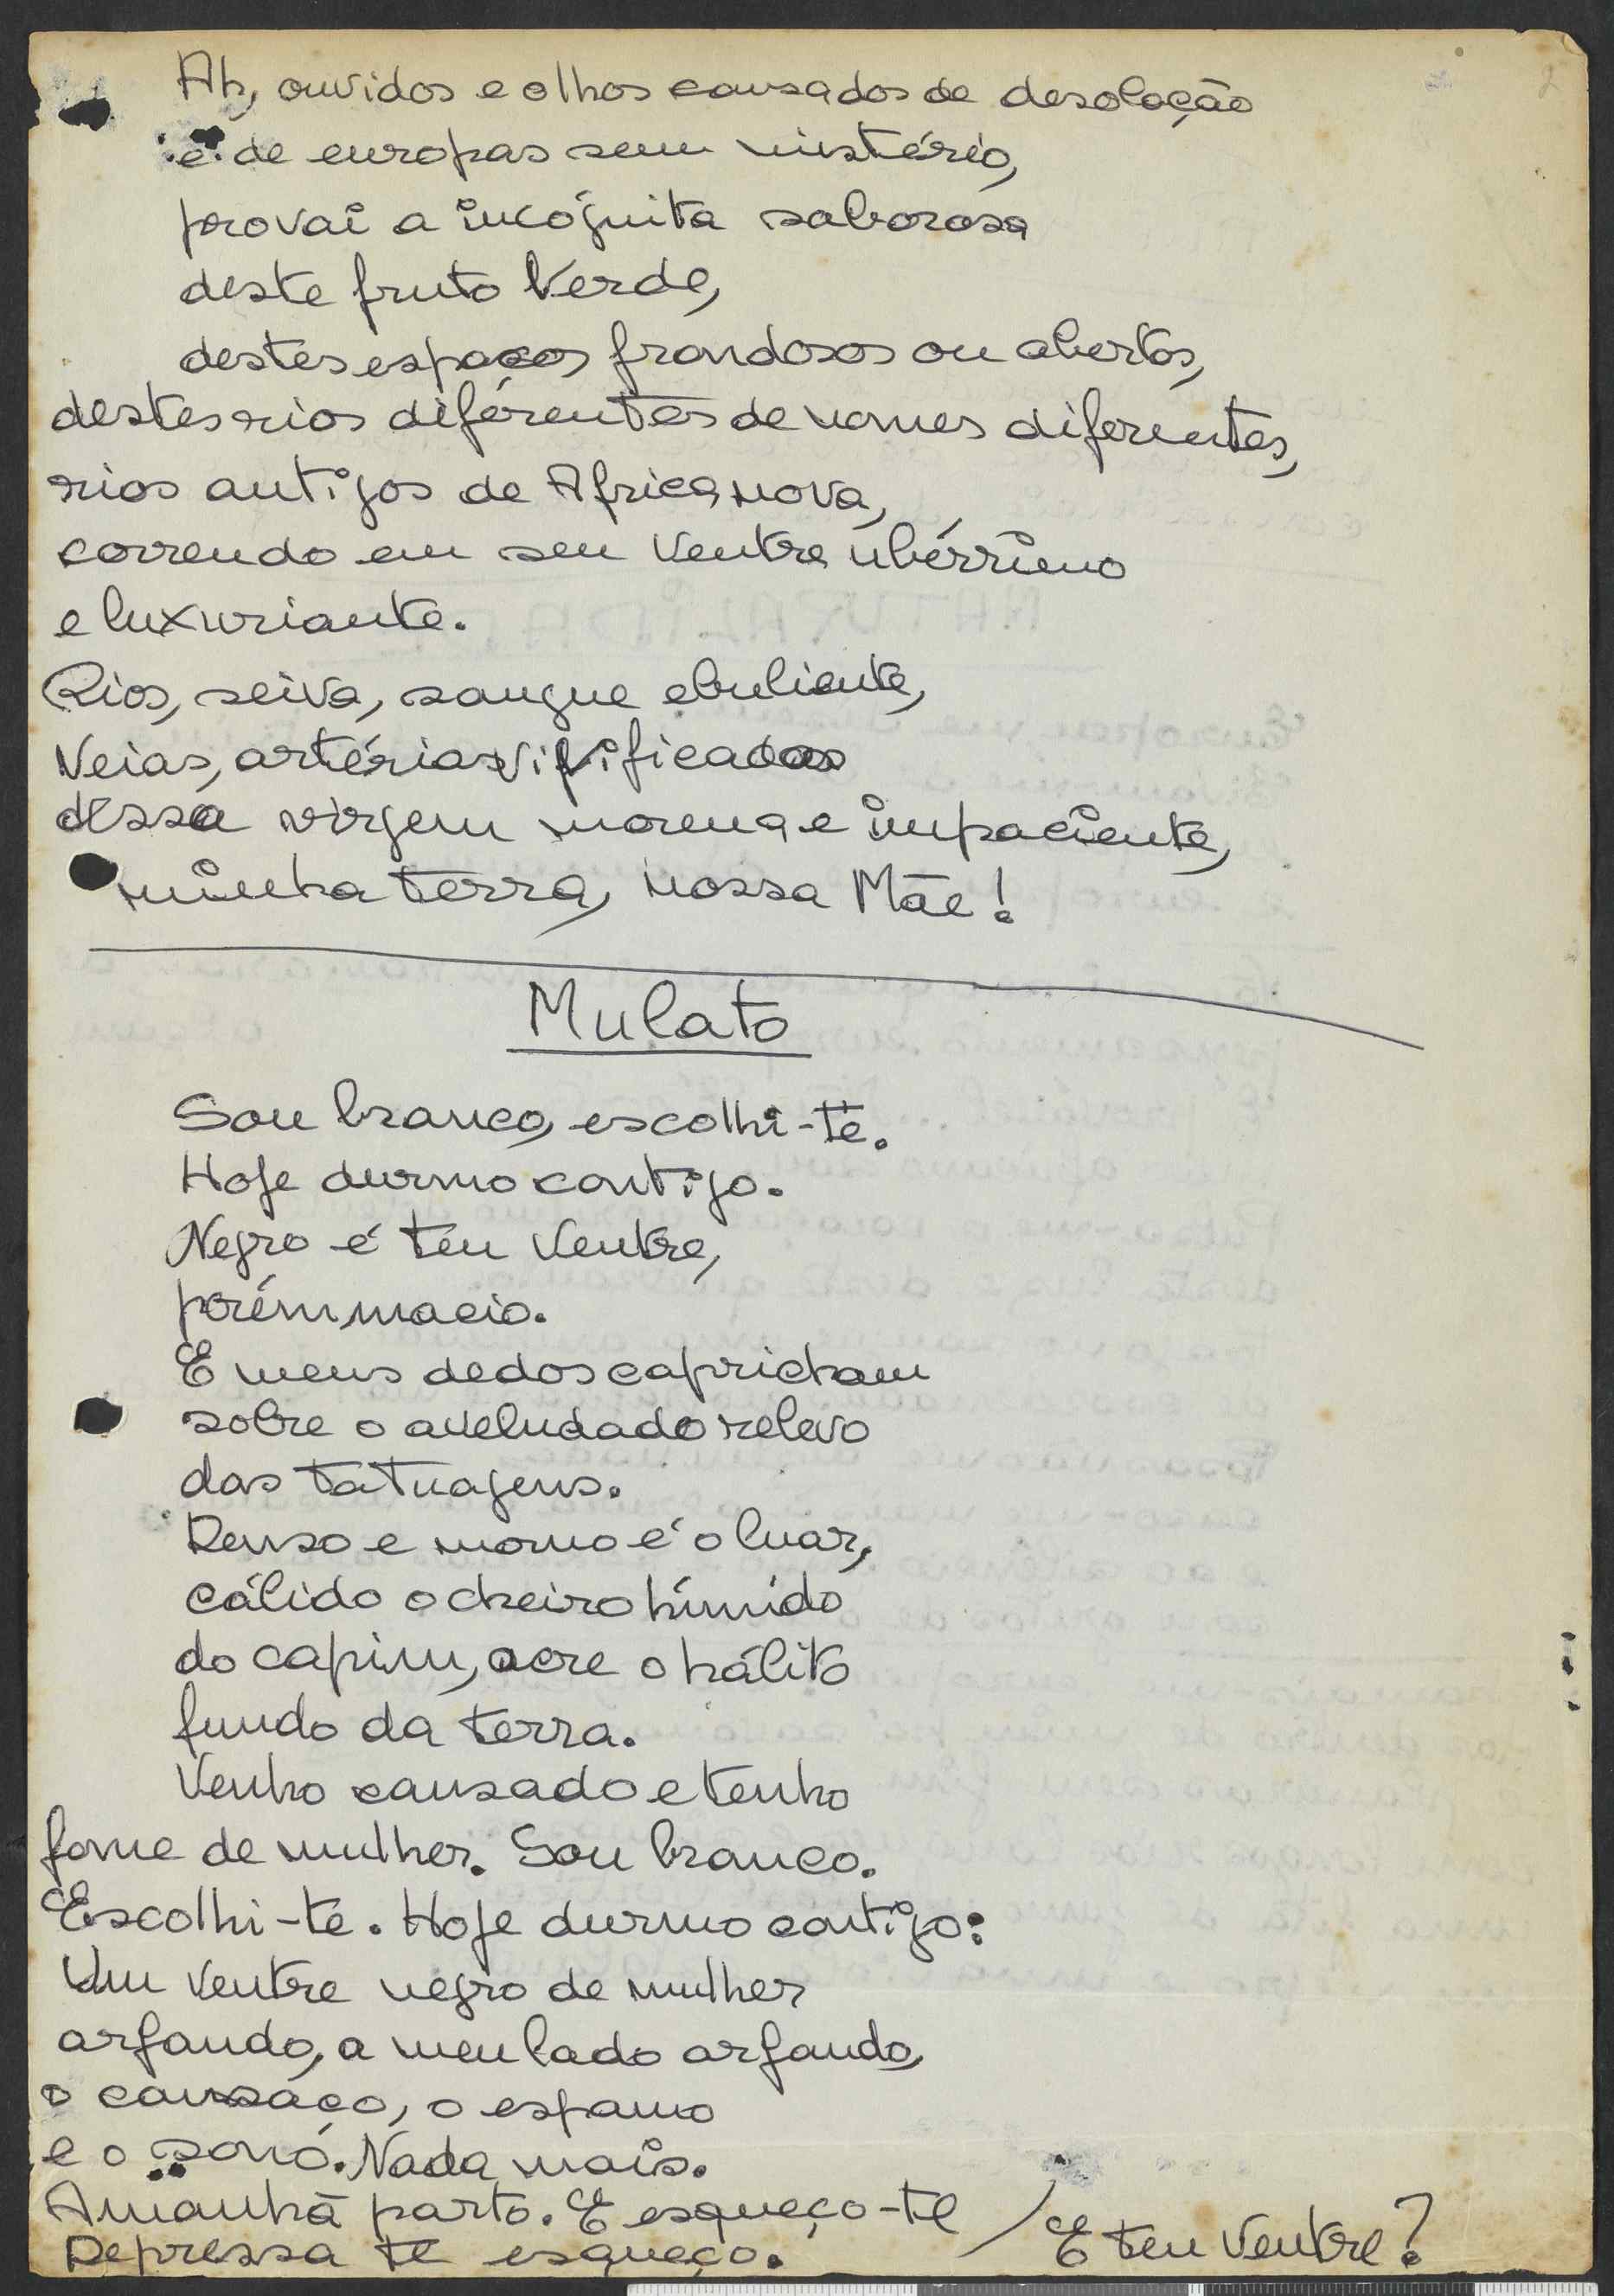 Ah, ouvidos e olhos cansados de desolação
e de europas sem mistério,
provai a incógnita saborosa
deste fruto Verde,
destes espaços frondosos ou abertos,
destes rios diferentes de nomes diferentes,
rios antigos de Africa nova,
correndo em seu Ventre ubérrimo
e luxuriante.
Rios, seiva, sangue ebuliente,
Veias, artérias vivificadas
dessa virgem morena e impaciente,
minha terra, nossa Mãe!
Mulato
Sou branco, escolhi-te.
Hoje durmo contigo.
Negro é teu Ventre,
porém, macio.
E meus dedos capricham
sobre o aveludado relevo
das tatuagens.
Denso e morno é o luar,
cálido o cheiro húmido
do capim, acre o hálito
fundo da terra.
Venho cansado e tenho
fome de mulher. Sou branco.
Escolhi-te. Hoje durmo contigo:
Um Ventre negro de mulher
arfando, a meu lado arfando,
o cansaço, o espamo
e o sono. Nada mais.
Amanhã parto. E esqueço-te
Depressa te esqueço. / E teu Ventre?
2